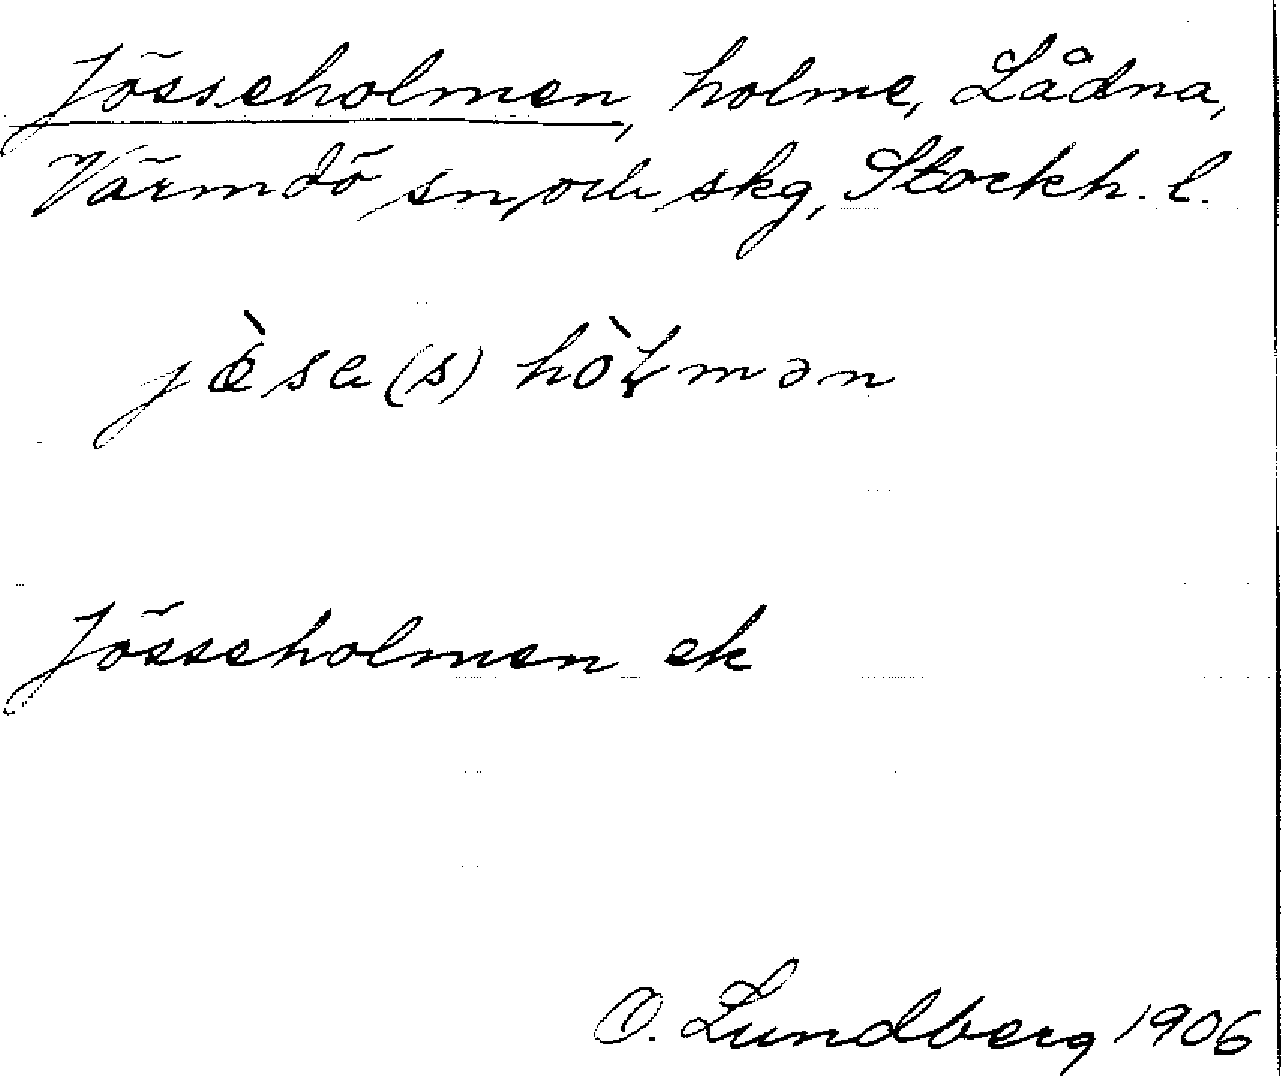 Jösseholmen, holme, Lådna,
Värmdö sn och skg, Stockh. l.
jø̀sa(s) hòłmən
Jösseholmen ek
O. Lundberg 1906